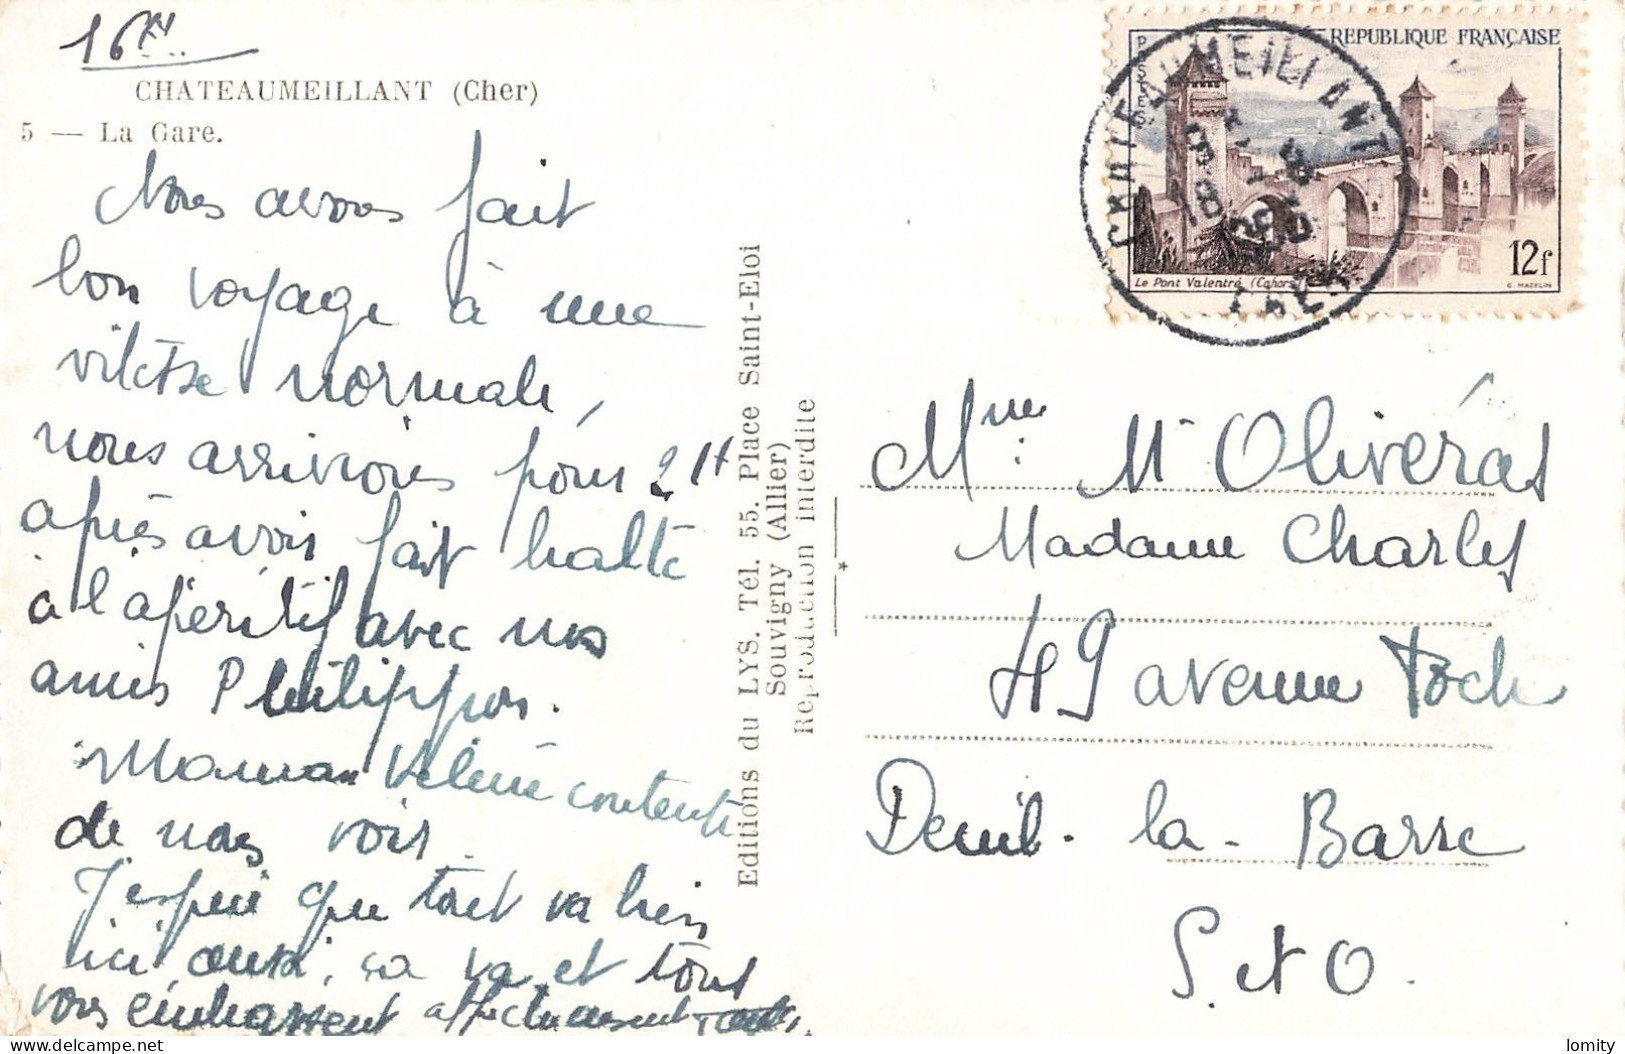 16 H
CHATEAUMEILLANT (Cher)
5 — La Gare.
Nous avons fait
bon voyage à une
vitesse normale,
nous arrivions pour 21H
après avoir fait halte
à l'apéritif avec nos
amis Philippon.
Maman Hélène contente
de nous voir.
J'espère que tout va bien
ici aussi, sa va et tous
vous embrassent affectueusement
Editions du LYS. Tél. 55. Place Saint-Eloi
Souvigny (Allier)
Reproduction interdite
POSTES
REPUBLIQUE FRANÇAISE
12f
Le Pont Valentré (Cahors)
C. MAZELIN
CHATEAUMEILLANT
CHER
Mme M Olivéras
Madame Charley
49 avenue Foch
Deuil-la-Barre
S. et O.
delcampe.net
lomity